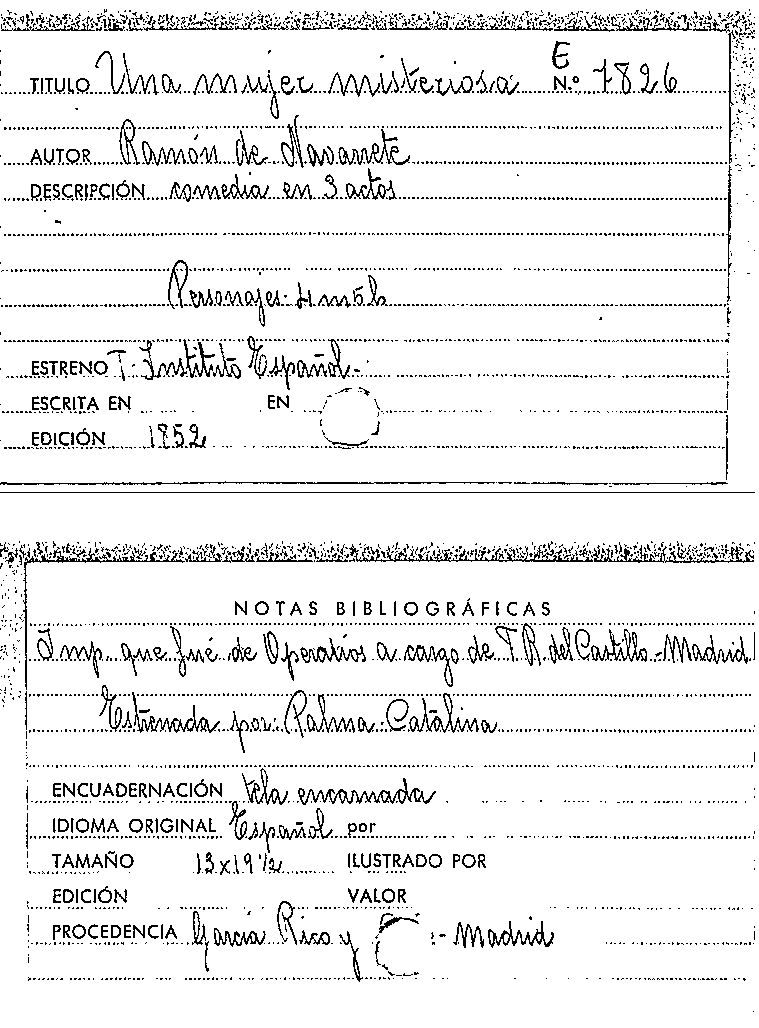 E
TITULO Una mujer misteriosa N.º 7826
AUTOR Ramón de Navarrete
DESCRIPCIÓN comedia en 3 actos
Personajes- 4 m 5 h
ESTRENO T. Instituto Español-
ESCRITA EN EN
EDICIÓN 1852
NOTAS BIBLIOGRÁFICAS
Imp. que fué de Operarios a cargo de F. R. del Castillo.-Madrid
Estrenada por: Palma-Catalina
ENCUADERNACIÓN tela encarnada
IDIOMA ORIGINAL Español por
TAMAÑO 13x19 1/2 ILUSTRADO POR
EDICIÓN VALOR
PROCEDENCIA García Rico y :- Madrid